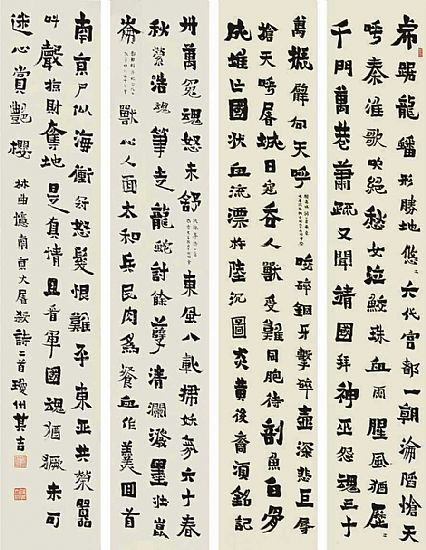 虎踞龍蟠形勝地悠悠六代官都一朝淪陷愴天
呼秦淮歌咽絕愁女泣鮫珠血雨腥風猶歷
千門萬巷蕭疏又聞靖國拜神巫怨魂三十
萬聲向天呼 咬碎鋼牙擊碎壺深悲巨辱
搶天呼屠城日吞人獸受難同胞待剖魚白
成堆亡國狀血流漂杵陸沉圖炎黃後裔須銘記
卅萬冤魂怒未舒 東風八載掃妖氛六十春
秋縈浩魂筆走龍蛇討餘孽清瀾潑墨壯崑
崙 獸心人面太和兵民肉為餐血作羹回首
南京尸似海衝冠怒髮恨難平東亞共榮囂
叫聲掠財奪地是真情且看軍國魂猶獗未可
迷心賞艷櫻 林曲憶南京大屠殺詩二首瓊州其吉